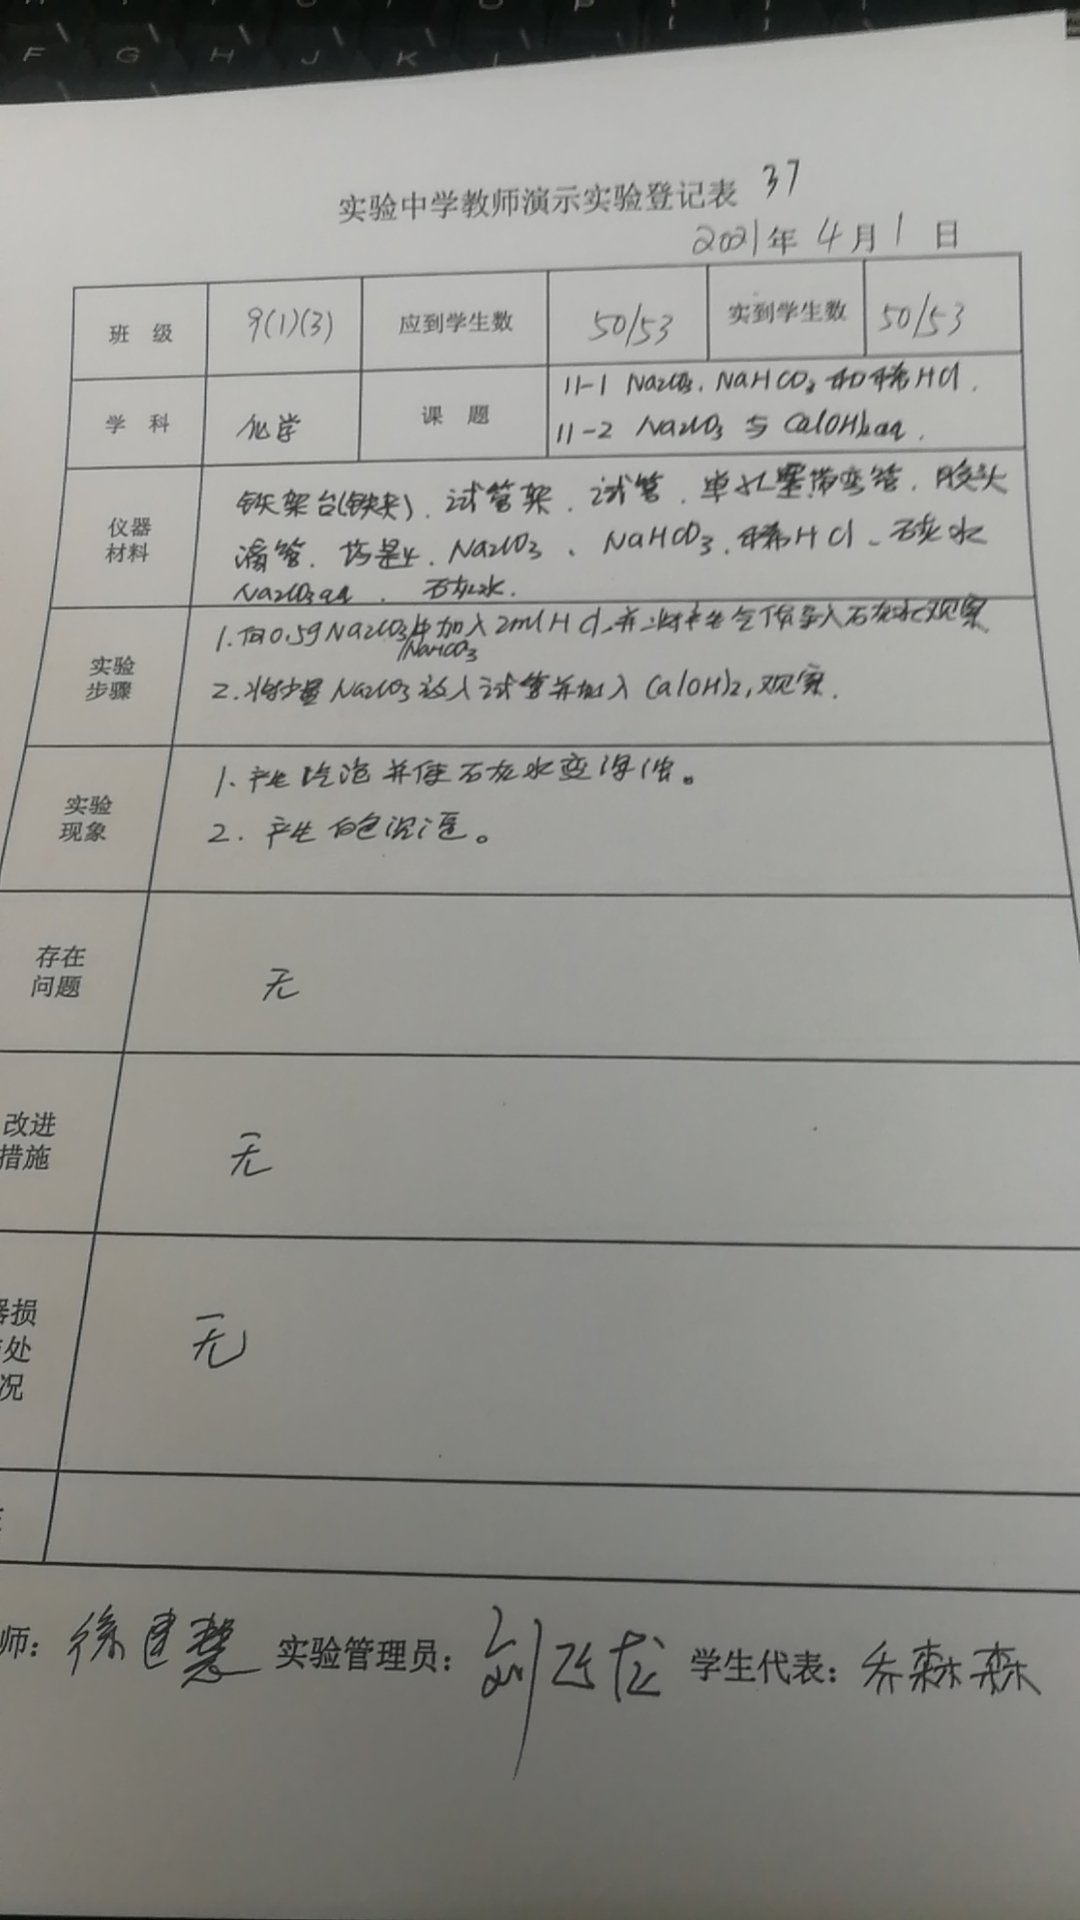 实验中学教师演示实验登记表 37
2021年 4月1日
班 级 9(1)(3) 应到学生数 50/53 实到学生数 50/53
学 科 化学 课 题 11-1 Na2CO3、NaHCO3和稀HCl.
11-2 Na2CO3与Ca(OH)2aq.
仪器
材料
铁架台(铁夹)、试管架、试管、单孔塞带弯管、胶头
滴管、药品匙、Na2CO3、NaHCO3、稀HCl、石灰水
Na2CO3aq、石灰水.
实验
步骤
1.向0.5gNa2CO3/NaHCO3中加入2mlHCl,并将产生气体导入石灰水观察
2.将少量Na2CO3放入试管并加入Ca(OH)2,观察.
实验
现象
1.产生气泡并使石灰水变浑浊。
2.产生白色沉淀。
存在
问题
无
改进
措施
无
器损
处
况
无
师: 徐建慧 实验管理员: 学生代表: 乔森森